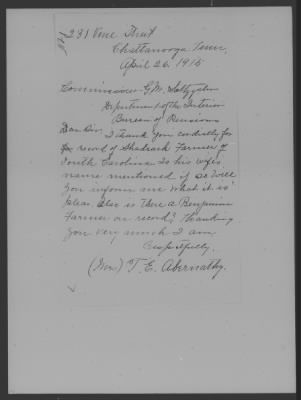 231 Vine Street
Chattanooga Tenn,
April 26. 1915
Commissioner G.M. Saltzgaber
Department of the Interior
Bureau of Pensions
Dear Sir. I thank you cordially for
record of Shadrack Farmer of
South Carolina. Is his wifes
name mentioned if so will
you inform me what it is
please. Also is there a Benjamin
Farmer on record? Thanking
you very much I am
Respectfully.
(Mrs) T. E. Abernathy.